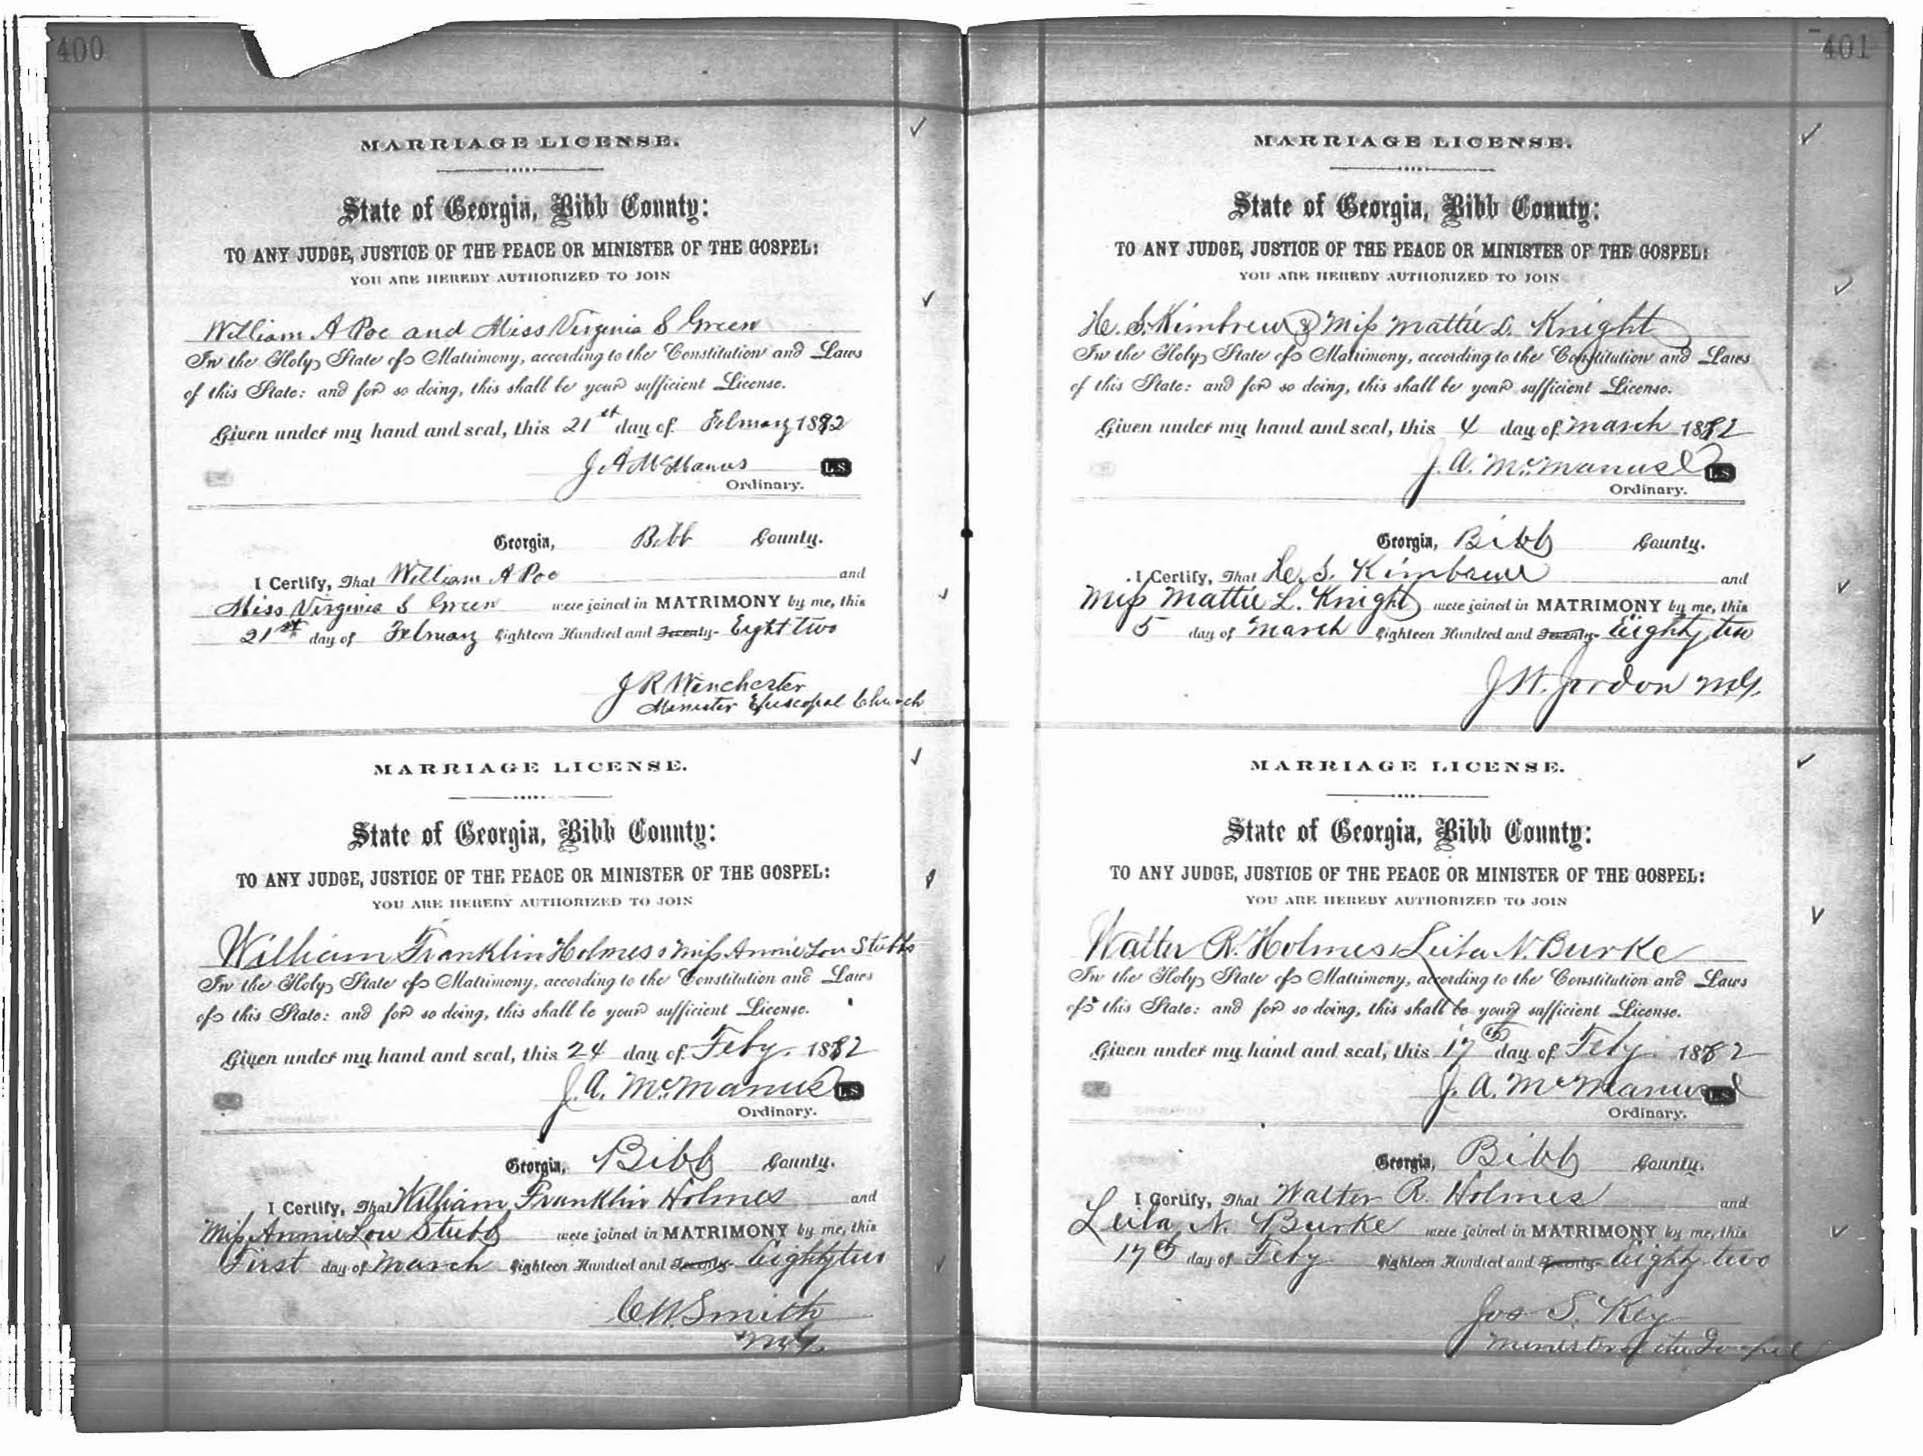 400
MARRIAGE LICENSE.
State of Georgia, Bibb County:
TO ANY JUDGE, JUSTICE OF THE PEACE OR MINISTER OF THE GOSPEL:
YOU ARE HEREBY AUTHORIZED TO JOIN
William A Poe and Miss Virginia S Green
In the Holy State of Matrimony, according to the Constitution and Laws
of this State: and for so doing, this shall be your sufficient License.
Given under my hand and seal, this 21st day of February 1882
J A McManus L.S.
Ordinary.
Georgia, Bibb County.
I Certify, That William A Poe and
Miss Virginia S Green were joined in MATRIMONY by me, this
21st day of February Eighteen Hundred and Seventy- Eight two
J R Winchester
Minister Episcopal Church
MARRIAGE LICENSE.
State of Georgia, Bibb County:
TO ANY JUDGE, JUSTICE OF THE PEACE OR MINISTER OF THE GOSPEL:
YOU ARE HEREBY AUTHORIZED TO JOIN
William Franklin Holmes & Miss Annie Lou Stubbs
In the Holy State of Matrimony, according to the Constitution and Laws
of this State: and for so doing, this shall be your sufficient License.
Given under my hand and seal, this 24 day of Feby. 1882
J. A. McManus L.S.
Ordinary.
Georgia, Bibb County.
I Certify, That William Franklin Holmes and
Miss Annie Lou Stubbs were joined in MATRIMONY by me, this
First day of March Eighteen Hundred and Seventy- Eighty two
C W. Smith
M.G.
401
MARRIAGE LICENSE.
State of Georgia, Bibb County:
TO ANY JUDGE, JUSTICE OF THE PEACE OR MINISTER OF THE GOSPEL:
YOU ARE HEREBY AUTHORIZED TO JOIN
H. S. Kimbrew & Miss Mattie L. Knight
In the Holy State of Matrimony, according to the Constitution and Laws
of this State: and for so doing, this shall be your sufficient License.
Given under my hand and seal, this 4 day of March 1882
J. A. McManus L.S.
Ordinary.
Georgia, Bibb County.
I Certify, That H. S. Kimbrew and
Miss Mattie L. Knight were joined in MATRIMONY by me, this
5 day of March Eighteen Hundred and Seventy- Eighty two
J. W. Jordon M.G.
MARRIAGE LICENSE.
State of Georgia, Bibb County:
TO ANY JUDGE, JUSTICE OF THE PEACE OR MINISTER OF THE GOSPEL:
YOU ARE HEREBY AUTHORIZED TO JOIN
Walter R. Holmes & Leila N. Burke
In the Holy State of Matrimony, according to the Constitution and Laws
of this State: and for so doing, this shall be your sufficient License.
Given under my hand and seal, this 17th day of Feby. 1882
J. A. McManus L.S.
Ordinary.
Georgia, Bibb County.
I Certify, That Walter R. Holmes and
Leila N. Burke were joined in MATRIMONY by me, this
17th day of Feby Eighteen Hundred and Seventy- Eighty two
Jos S. Key
Minister of the Gospel